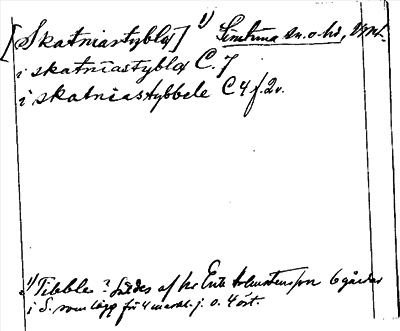 [Skatniastyblæ] 1) Simtuna sn. o. hd, Vpml.
i skatniastyblæ C. 7
i skatniastybbele C 4 f. 2v.
1) Tibble? Säldes af hr Erik Holmstensson 6 gårdar
i S. som lägg för 4 markl. j. o. 4 ört.